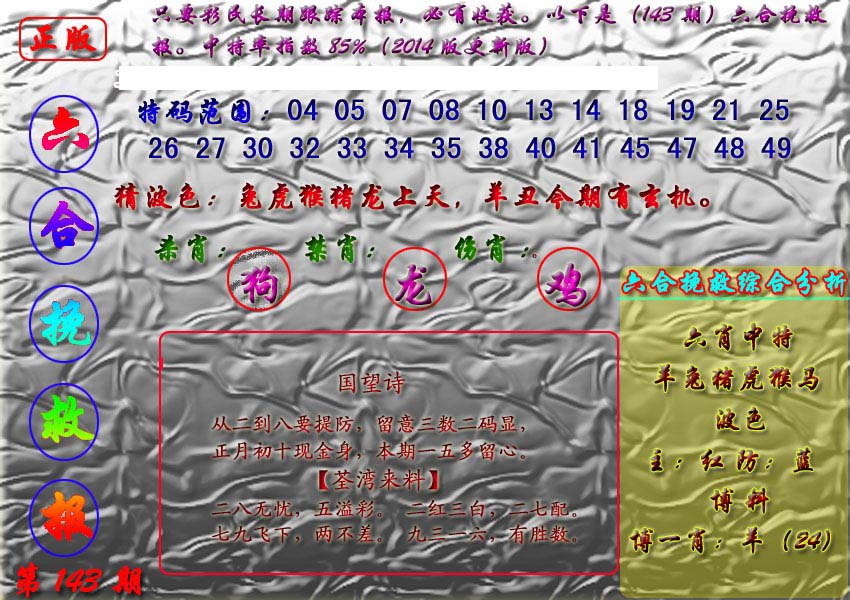 正版
只要彩民长期跟踪本报，必有收获。以下是（143期）六合挽救
报。中特率指数85%（2014版更新版）
六
合
挽
救
报
第143期
特码范围：04 05 07 08 10 13 14 18 19 21 25
26 27 30 32 33 34 35 38 40 41 45 47 48 49
猜波色：兔虎猴猪龙上天，羊丑今期有玄机。
杀肖： 禁肖： 伤肖：。
狗 龙 鸡
国望诗
从二到八要提防，留意三数二码显，
正月初十现金身，本期一五多留心。
【荃湾来料】
二八无忧，五溢彩。 二红三白，二七配。
七九飞下，两不差。 九三一六，有胜数。
六合挽救综合分析
六肖中特
羊兔猪虎猴马
波色
主：红防：蓝
博料
博一肖：羊（24）